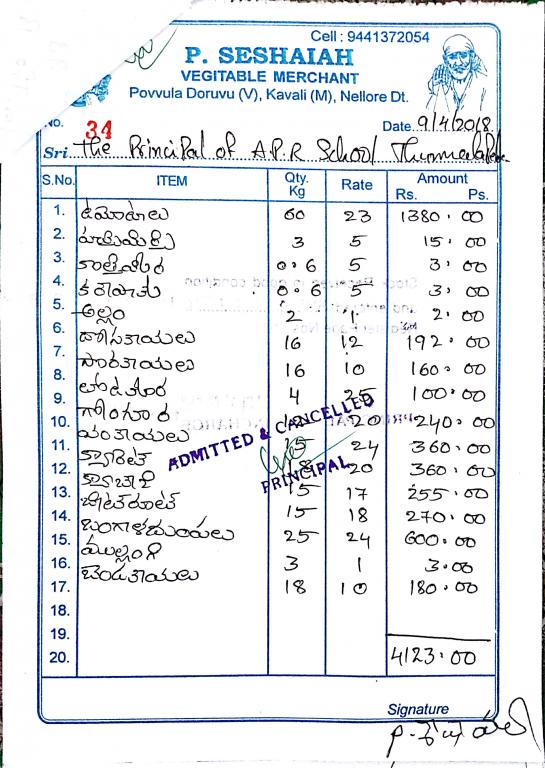 Cell : 9441372054
P. SESHAIAH
VEGITABLE MERCHANT
Povvula Doruvu (V), Kavali (M), Nellore Dt.
No. 34 Date 9/4/2018
Sri The Principal of A.P.R School
S.No. ITEM Qty. Kg Rate Amount Rs. Ps.
1. టమోటాలు 60 23 1380.00
2. పచ్చిమిర్చి 3 5 15.00
3. కొత్తిమీర 0.6 5 3.00
4. కరివేపాకు 0.6 5 3.00
5. అల్లం 2 1 2.00
6. దోసకాయలు 16 12 192.00
7. సొరకాయలు 16 10 160.00
8. తోటకూర 4 25 100.00
9. గోంగూర 12 20 240.00
10. వంకాయలు 15 24 360.00
11. క్యారెట్ 18 20 360.00
12. క్యాబేజి 15 17 255.00
13. బీట్‌రూట్ 15 18 270.00
14. బంగాళదుంపలు 25 24 600.00
15. ముల్లంగి 3 1 3.00
16. బెండకాయలు 18 10 180.00
17.
18.
19.
20. 4123.00
ADMITTED & CANCELLED
PRINCIPAL
Signature